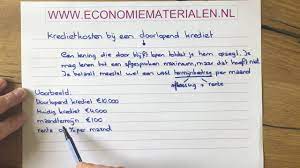 WWW.ECONOMIEMATERIALEN.NL
Kredietkosten bij een doorlopend krediet
Een lening die door blijft lopen totdat je hem opzegt. Je
mag lenen tot een afgesproken maximum, maar dat hoeft niet.
Je betaalt meestal wel een vast termijnbedrag per maand
aflossing + rente
Voorbeeld:
Doorlopend krediet €10.000
Huidig krediet €4.000
maandtermijn €100
rente per maand